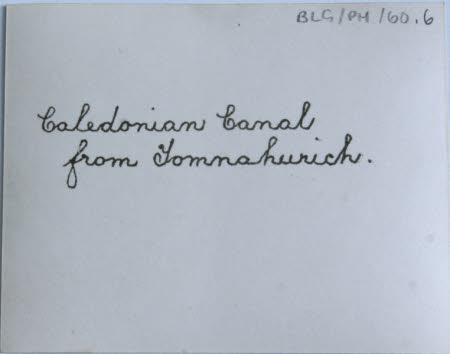 BLG/PH/60.6
Caledonian Canal
from Tomnahurich.